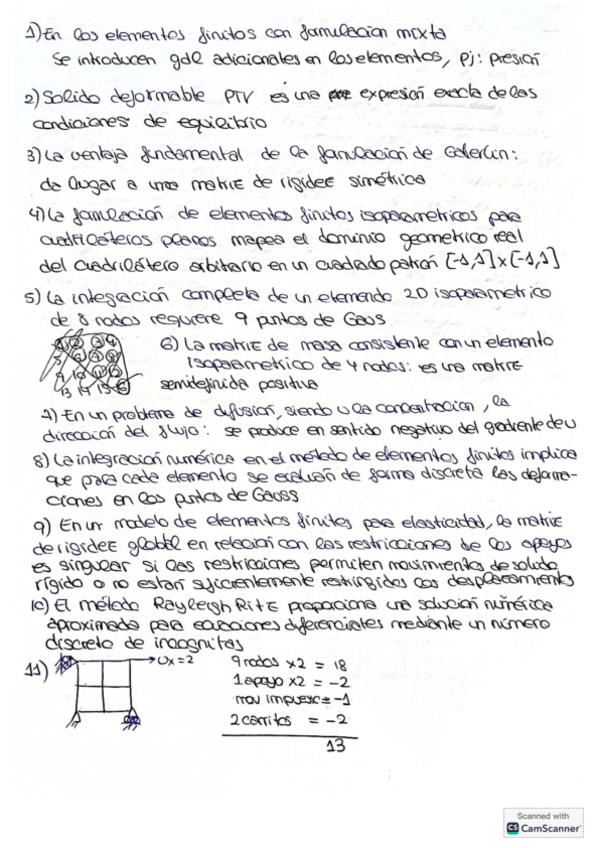 1) En los elementos finitos con formulacion mixta
Se introducen gdl adicionales en los elementos, pj: presión
2) Solido deformable PTV es una expresión exacta de las
condiciones de equilibrio
3) La ventaja fundamental de la formulación de Galerkin:
da lugar a una matriz de rigidez simétrica
4) La formulación de elementos finitos isoparametricos para
cuadriláteros planos mapea el dominio geometrico real
del cuadrilátero arbitrario en un cuadrado patrón [-1,1]x[-1,1]
5) La integración completa de un elemendo 2D isoparametrico
de 8 nodos requiere 9 puntos de Gaus
6) La matriz de masa consistente con un elemento
isoparametrico de 4 nodos: es una matriz
semidefinida positiva
13 14 15
7) En un problema de difusion, siendo u la concentracion, la
dirección del flujo: se produce en sentido negativo del gradiente de u
8) La integración numérica en el método de elementos finitos implica
que para cada elemento se evaluan de forma discreta las deforma-
ciones en los puntos de Gauss
9) En un modelo de elementos finitos para elasticidad, la matriz
de rigidez global en relación con las restricciones de los apoyos
es singular si las restricciones permiten movimientos de solido
rígido o no estan suficientemente restringidos los desplazamientos
10) El método Rayleigh Ritz proporciona una solución numérica
aproximada para ecuaciones diferenciales mediante un número
discreto de incognitas
11) Ux=2
9 nodos x2 = 18
1 apoyo x2 = -2
mov impuesto = -1
2 carritos = -2
13
Scanned with
CS CamScanner